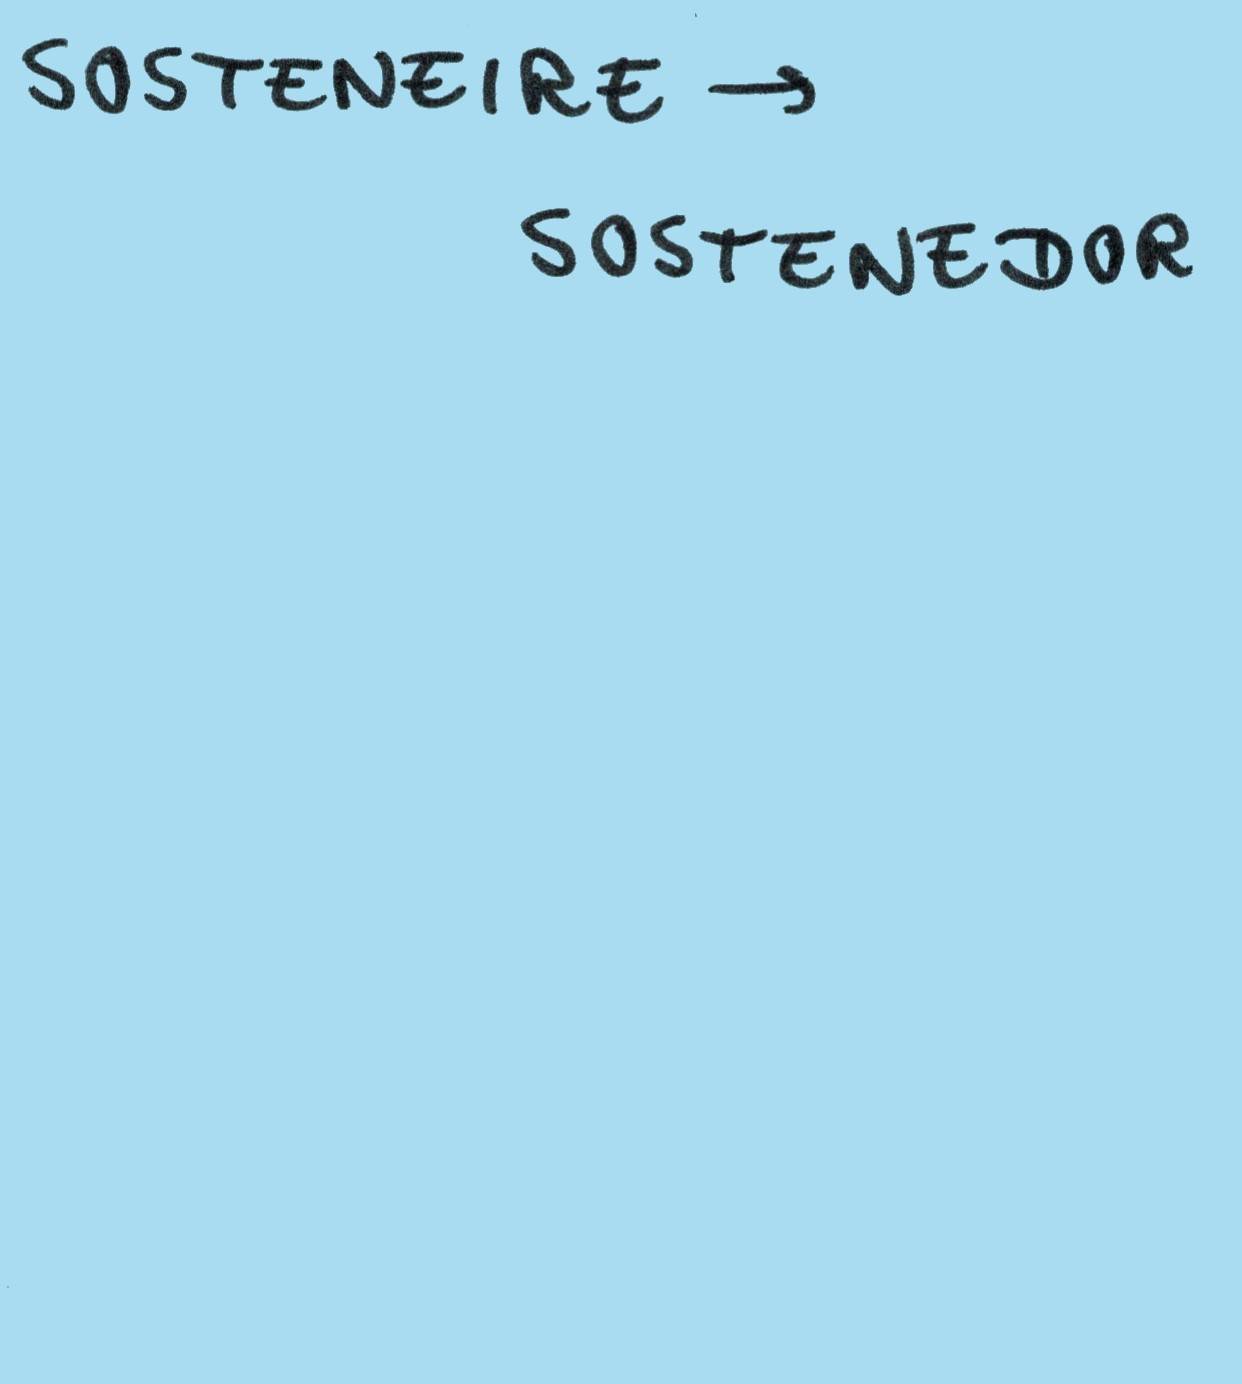 SOSTENEIRE →
SOSTENEDOR